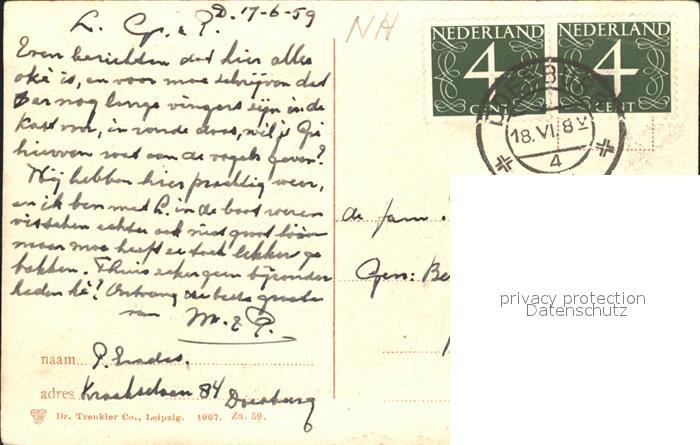 D. 17-6-59
NH
L. G. & P.
Even berichten dat hier alles
oké is, en voor moe schrijven dat
er nog lange vingers zijn in de
kast voor, in ronde doos, wil je Gé
hiervan wat aan de vogels geven?
Wij hebben hier prachtig weer,
en ik ben met L. in de boot wezen
visschen echter ook niet groot
maar moe heeft ze toch lekker ge
bakken. Thuis zeker geen bijzonder
heden hè? Ontvang de beste groeten
van M. & P.
naam P.
adres 84 Doesburg
Dr. Trenkler Co., Leipzig. 1907. Za. 59.
NEDERLAND
4
CENT
NEDERLAND
4
CENT
18.VI.8V
4
de fam.
Gen: Be
privacy protection
Datenschutz